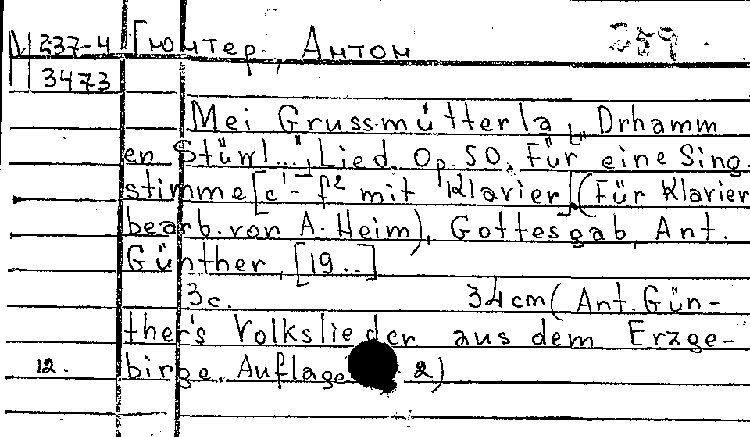 М 237-4 Гюнтер, Антон 259
3473
Mei Grussmütterla „Drhamm
en Stüwl...", Lied. Op. 50. Für eine Sing
stimme [c¹-f² mit Klavier] (Für Klavier
bearb. von A. Heim), Gottesgab, Ant.
Günther, [19..]
3c. 34 cm (Ant. Gün-
ther's Volkslieder aus dem Erzge-
12. birge. Auflage 2)